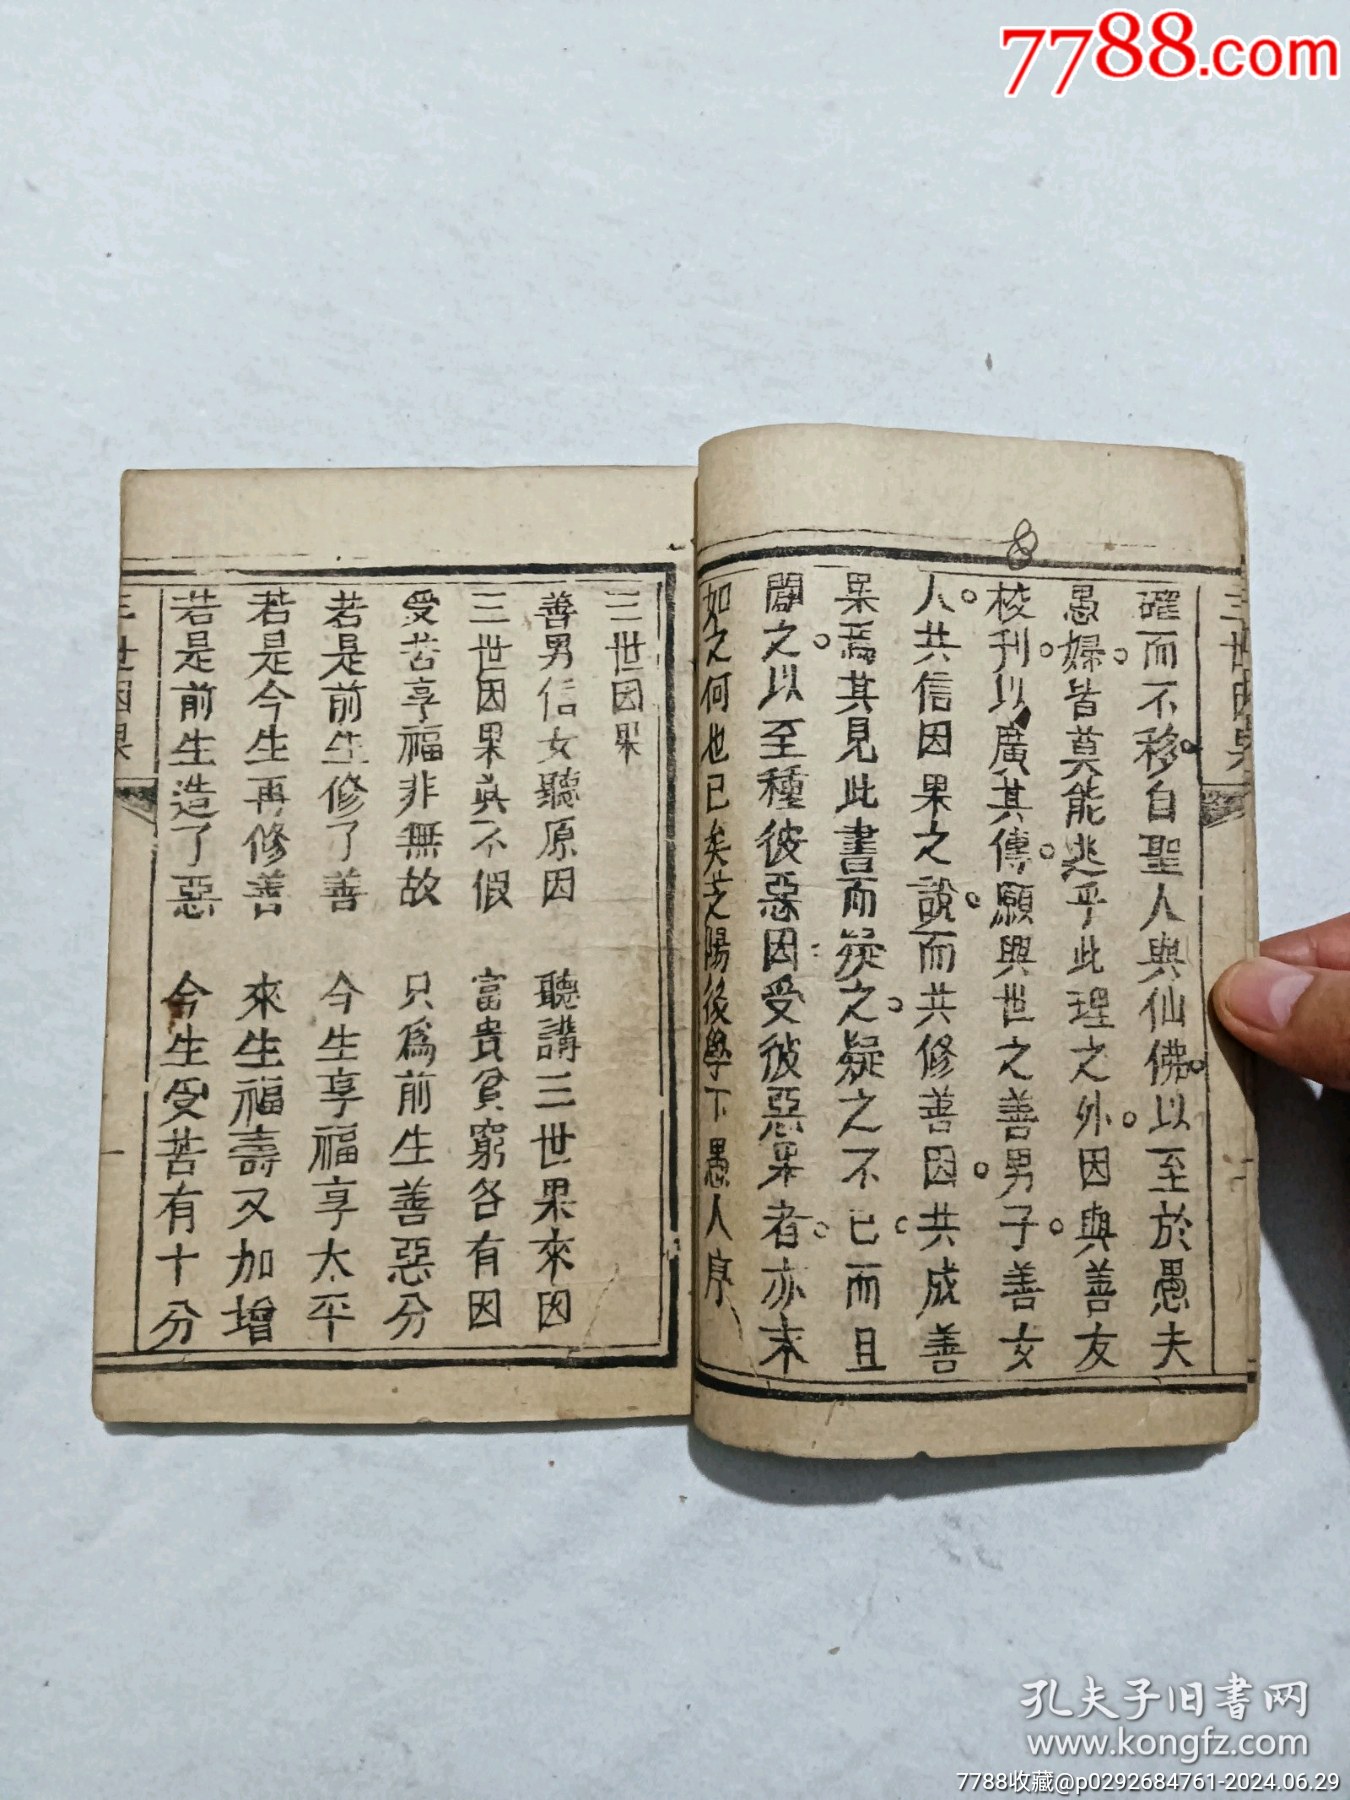 7788.com
三世因果
確而不移。自聖人與仙佛。以至於愚夫
愚婦。皆莫能逃乎此理之外。因與善友
校刊。以廣其傳。願與世之善男子。善女
人。共信因果之說。而共修善因。共成善
果焉其見此書而疑之。疑之不已。而且
闢之。以至種彼惡因受彼惡果者。亦末
如之何也已矣芝陽後學下愚人序
三世因果
善男信女聽原因 聽講三世果來因
三世因果真不假 富貴貧窮各有因
受苦享福非無故 只為前生善惡分
若是前生修了善 今生享福享太平
若是今生再修善 來生福壽又加增
若是前生造了惡 今生受苦有十分
三世因果
一
孔夫子旧書网
www.kongfz.com
7788收藏@p0292684761-2024.06.29